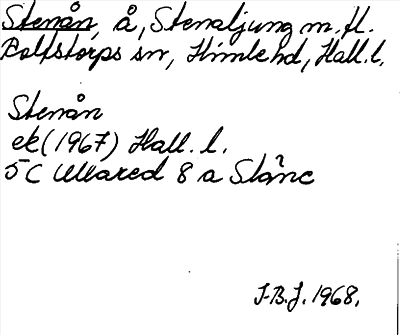 Stenån, å, Stenaljung m.fl.
Rolfstorps sn, Himle hd, Hall. l.
Stenån
ek (1967) Hall. l.
5C Ullared 8 a Stånc
J.B.J. 1968.